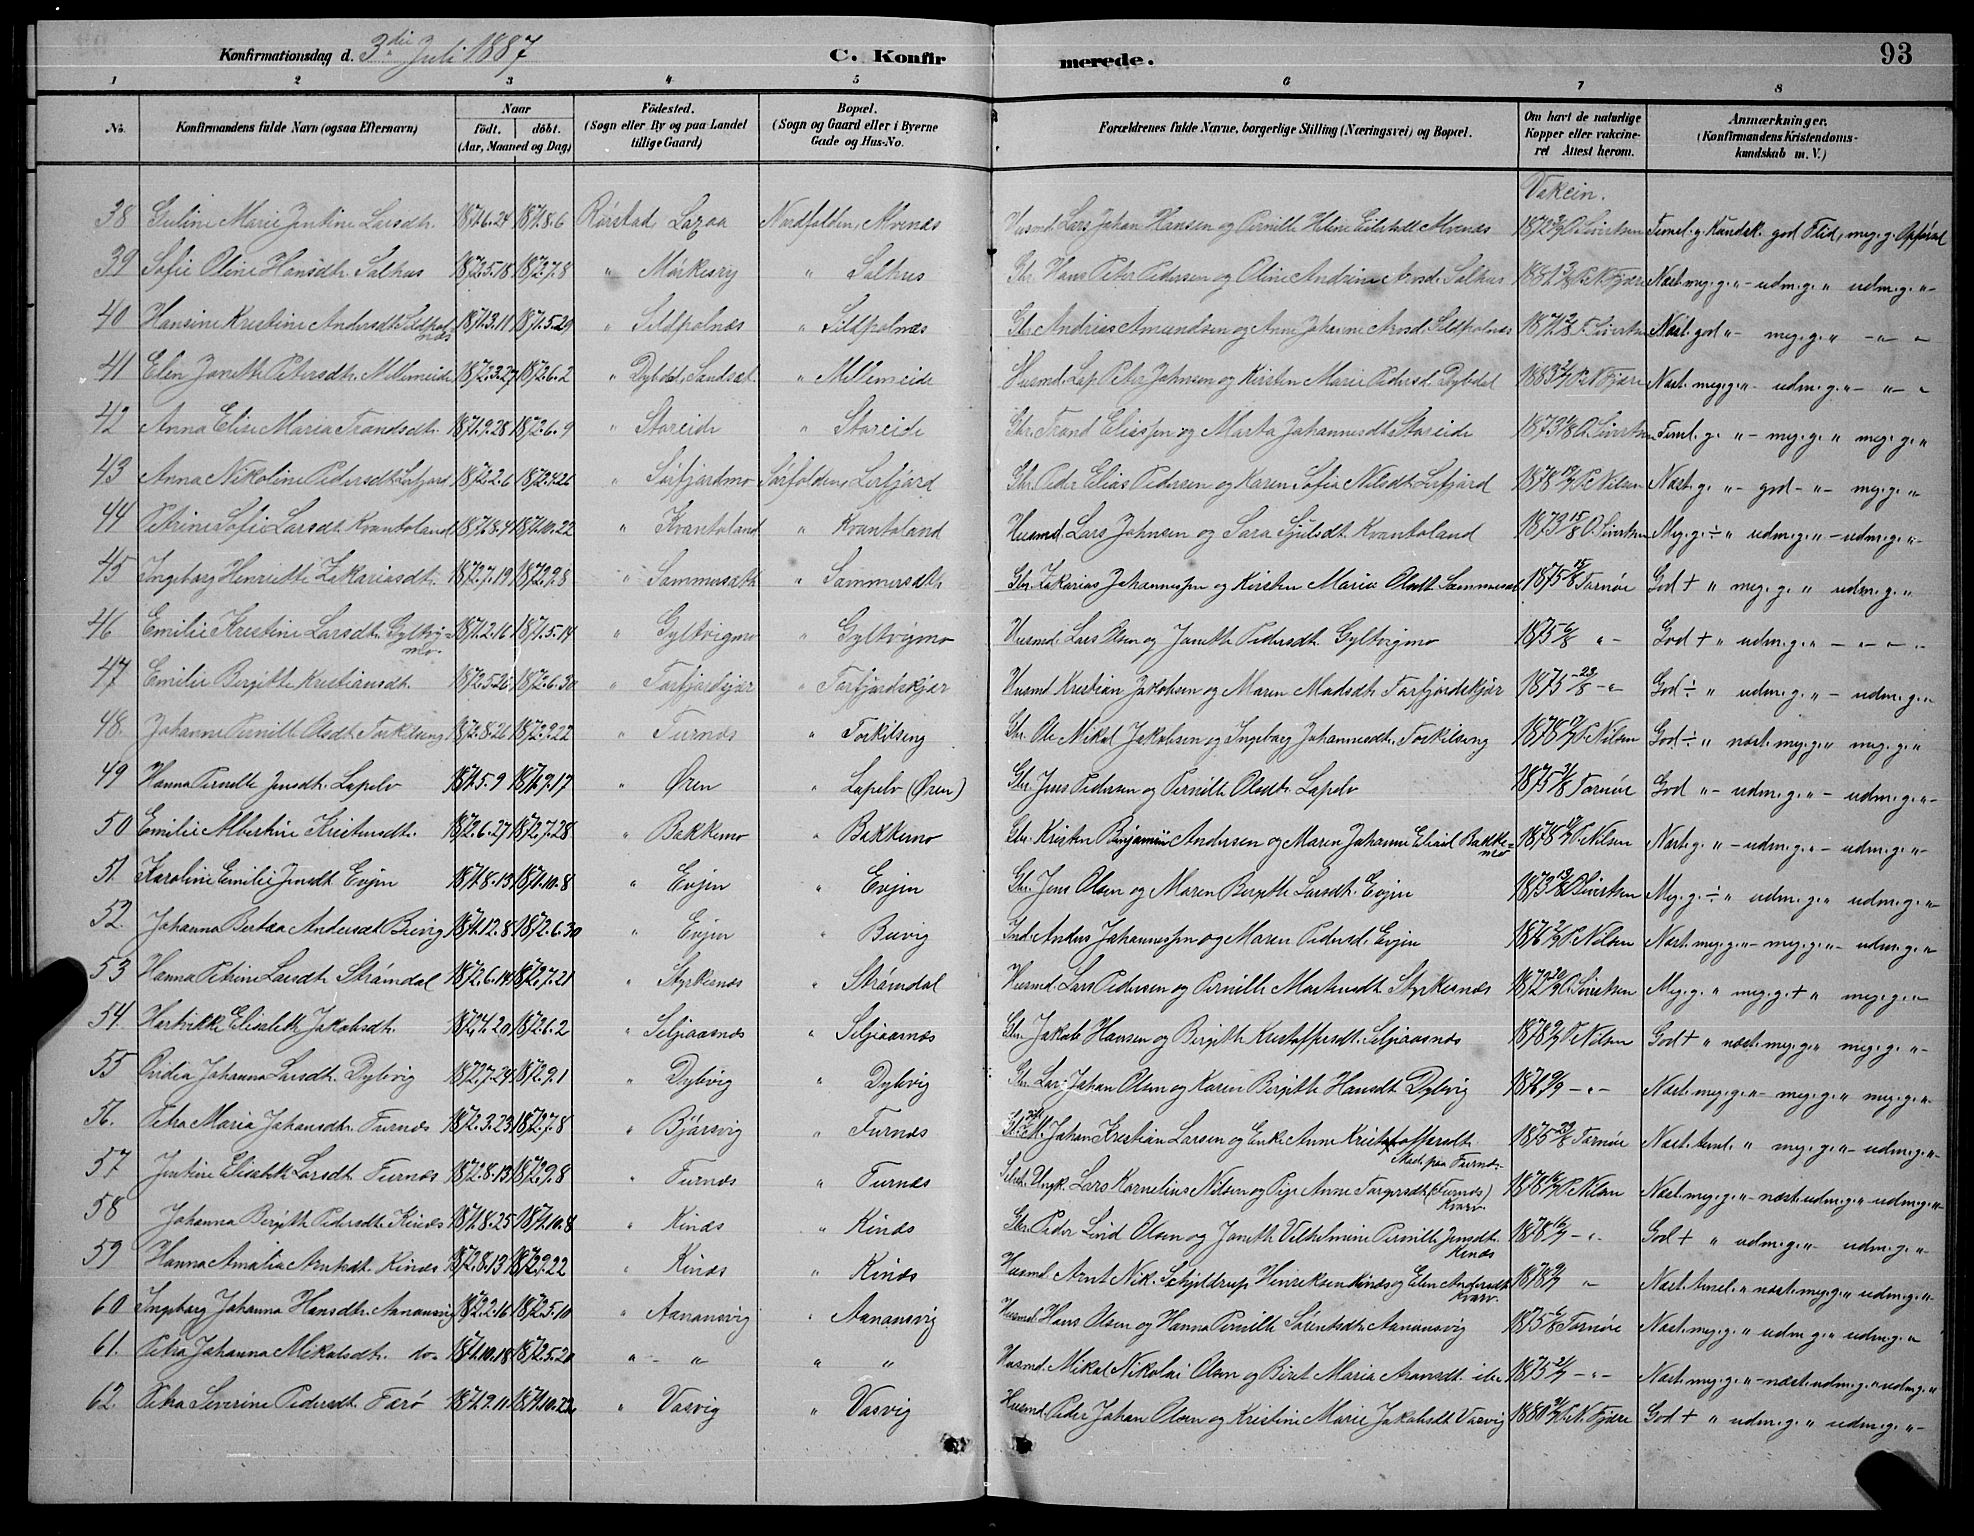 Konfirmationsdag d. 3die Juli 1887 C. Konfirmerede. 93
1 2 3 4 5 6 7 8
No. Konfirmandens fulde Navn (ogsaa Efternavn) Naar født. døbt. (Aar, Maaned og Dag) Fødested. (Sogn eller By og paa Landet tillige Gaard) Bopæl. (Sogn og Gaard eller i Byerne Gade og Hus-No. Forældrenes fulde Navne, borgerlige Stilling (Næringsvei) og Bopæl. Om havt de naturlige Kopper eller vakcineret Attest herom. Anmærkninger. (Konfirmandens Kristendomskundskab m. V.)
Vakcin.
38 Guline Marie Jentine Larsdtr. 1871.6.24 1871.8.6 Rørstad, Lazaa Nordfolden, Mvenæs Husmd. Lars Johan Hansen og Pernille Helene Mvenæs O. Sivertsen Teml. g. Kundsk. god Flid, meg. g. Opførsel
39 Sofie Oline Hansdtr. Salhus 1872.5.18 1872.7.8 " Mørkesry " Salhus Gbr. Hans Peter Pedersen og Oline Andrine Arnsd. Salhus P. N. Fjære Næst. meg. g. "- udm. g. " udm. g. "-
40 Hansine Kristine Andersdtr. Sildpolnæs 1871.3.11 1871.5.29 " Sildpolnæs " Sildpolnæs Gbr. Andrias Amundsen og Anne Johanne Arnsd. Sildpolnæs Sivertsen Næst. god "- meg. g. " -"- "
41 Elen Janette Petersdtr. Millemeide 1872.3.27 1872.6.2 " Dybdal, Sandsæt. " Millemeide Husmd. Lap Peter Johnsen og Kirsten Marie Pedersd. Dybdal P. N. Fjære Næst. meg. g. "- udm. g. "- " "
42 Anna Elise Maria Trandsdtr. 1871.9.28 1872.6.9 " Storeide " Storeide Gbr. Trand Eliassen og Marta Johannesdtr. Storeide O. Sivertsen Teml. g. "- meg. g. " meg. g. "
43 Anna Nikoline Pedersdtr. Leirfjord 1872.2.6 1872.4.26 " Sørfjordmo Sørfolden, Leirfjord Gbr. Peder Elias Pedersen og Karen Sofie Nilsdtr. Leirfjord 1878 P. Nilsen Næst. g. "- god -"- meg. g. "
44 Petrine Sofie Larsdtr. Kvantoland 1871.8.4 1871.10.22 " Kvantoland " Kvantoland Husmd. Lars Johnsen og Sara Sjulsdtr. Kvantoland 1873 15/8 O. Sivertsen Meg. g. ÷ " udm. g. "- udm. g. "-
45 Ingeborg Henriette Zakariasdtr. 1872.7.19 1872.9.8 " Sammersæth " Sammersæth Gbr. Zakarias Johannessen og Kirsten Maria Olsdtr. Sammersæt 1875 Tornøe God + " meg. g. " udm. g. "
46 Emilie Kristine Larsdtr. Gyltvigmo. 1871.2.16 1871.5.14 " Gyltvigmo " Gyltvigmo Husmd. Lars Olsen og Janette Pedersdtr. Gyltvigmo 1875 6/8 "- God + " udm. g. "- -"- "
47 Emilie Bergitte Kristiansdtr. 1872.5.26 1872.6.30 " Tørfjordskjær " Tørfjordskjær Husmd. Kristian Jakobsen og Maren Madsdtr. Tørfjordskjær 1875 23/8 -"- God ÷ " udm. g. "- udm. g. "-
48. Johanne Pernille Olsdtr. Torkilseng 1872.8.26 1872.9.22 " Furnæs " Torkilseng Gbr. Ole Nikal Jakobsen og Ingeborg Johannesdtr. Torkilseng 1878 P. Nilsen God ÷ " næst. meg. g. " meg. g. "
49 Hanna Pernille Jensdtr. Lapelv 1871.5.9 1871.9.17 " Øren " Lapelv (Øren) Gbr. Jens Pedersen og Pernille Olsdtr. Lapelv 1875 Tornøe God "- udm. g. "- udm. g. "-
50 Emilie Albertine Kristensdtr. 1872.6.27 1872.7.28 " Bakkemo " Bakkemo Gbr. Kristen Benjamin Andersen og Maren Johanne Eliasd. Bakkemo 1878 P. Nilsen Næst. g. "- udm. g. "- udm. g. "-
51. Karoline Emilie Jensdtr. Evjen 1871.8.13 1871.10.8 " Evjen " Evjen Gbr. Jens Olsen og Maren Bergitte Larsdtr. Evjen 1873 O. Sivertsen Meg. g. ÷ " udm. g. " udm. g. "-
52. Johanna Bertea Andersdt. Beivig 1871.12.8 1872.6.30 " Evjen " Beivig Ind. Anders Johannessen og Maren Pedersd. Evjen 1876 P. Nilsen Næst. meg. g. "- meg. g. "- udm. g. "
53 Hanna Petrine Larsdtr. Strømdal 1872.6.14 1872.7.21 " Styrkesnæs " Strømdal Husmd. Lars Pedersen og Pernille Martinsdt. Styrkesnæs O. Sivertsen Meg. g. " meg. g. + " meg. g. "-
54 Hartvikke Elisabeth Jakobsdt. 1872.4.20 1872.6.2 " Seljeaasnæs " Seljeaasnæs Gbr. Jakob Hansen og Birgitte Kristoffersdt. Seljeaasnæs 1878 P. Nilsen God + " næst. meg. g. " meg. g. "-
55 Ovidia Johanna Larsdtr. Dybvig 1872.7.24 1872.9.1 " Dybvig " Dybvig Gbr. Lars Johan Olsen og Karen Bergitte Hansdt. Dybvig 1876 -"- Næst. meg. g. "- meg. g. " meg. g. "-
56. Petra Maria Johansdtr. Furnæs 1872.3.23 1872.7.8 " Bjørsvig " Furnæs Johan Kristian Larsen og Enke Anne Kristoffersdtr. Mad. paa Furnæs 1875 Tornøe Næst. teml. " meg. g. "- udm. g. "-
57 Jentine Elisabeth Larsdt. Furnæs 1872.8.13 1872.9.8 " Furnæs " Furnæs Ungk. Lars Kornelius Nilsen og Pige Anne Torgersdt. (Furnæs) Kvarv. 1878 P. Nilsen Næst. meg. g. "- næst. udm. g. " udm. g. "-
58 Johanna Bergitte Pedersdt. Kinæs 1871.8.25 1871.10.8 " Kinæs " Kinæs Gbr. Peder Lind Olsen og Janette Vilhelmine Pernille Jensdt. Kinæs 1878 -"- God + " udm. g. "- udm. g. "-
59 Hanna Amalia Arntsdt. Kinæs 1872.8.13 1872.9.22 " Kinæs " Kinæs Husmd. Arnt Nik. Schjeldrup Henriksen Kinæs og Elen Andersdt. Kvarv. 1878 " Næst. teml. " næst. meg. g. " udm. g. "
60 Ingeborg Johanna Hansdt. Aanansvig 1872.2.16 1872.5.10 " Aanansvig " Aanansvig Husmd. Hans Olsen og Hanna Pernille Sørensdtr. Aanansvig 1875 6/8 Tornøe Næst. meg. g. " udm. g. " udm. g. "-
61. Petra Johanna Mikalsdt. do. 1871.10.18 1872.5.20 " - " " " Husmd. Mikal Nikolai Olsen og Beret Maria Aronsdt. ibr 1875 -"- Næst. meg. g. "- næst. udm. g. " udm. g. "
62. Petra Severine Pedersdt. Færø 1871.9.11 1871.10.22 " Vasvig " Vasvig Husmd. Peder Johan Olsen og Kristine Marie Jakobsdt. Vasvig 1880 P. N. Fjære God + " udm. g. " udm. g. "-